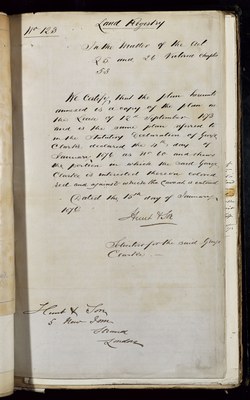 No 123
Land Registry
In the Matter of the Act
25 and 26 Victoria Chapter
53
We Certify, that the plan hereunto
annexed is a copy of the plan on
the Lease of 12th September 187
and is the same plan referred to
in the Statutory Declaration of George
Clarke declared the day of
January 1876 as No and shews
the portion in which the said George
Clarke is interested thereon colored
red and against which the Caveat is entered
Dated the 15th day of January
1876
Hunt & Son
Solicitors for the said George
Clarke
Hunt & Son
5 New Inn
Strand
London